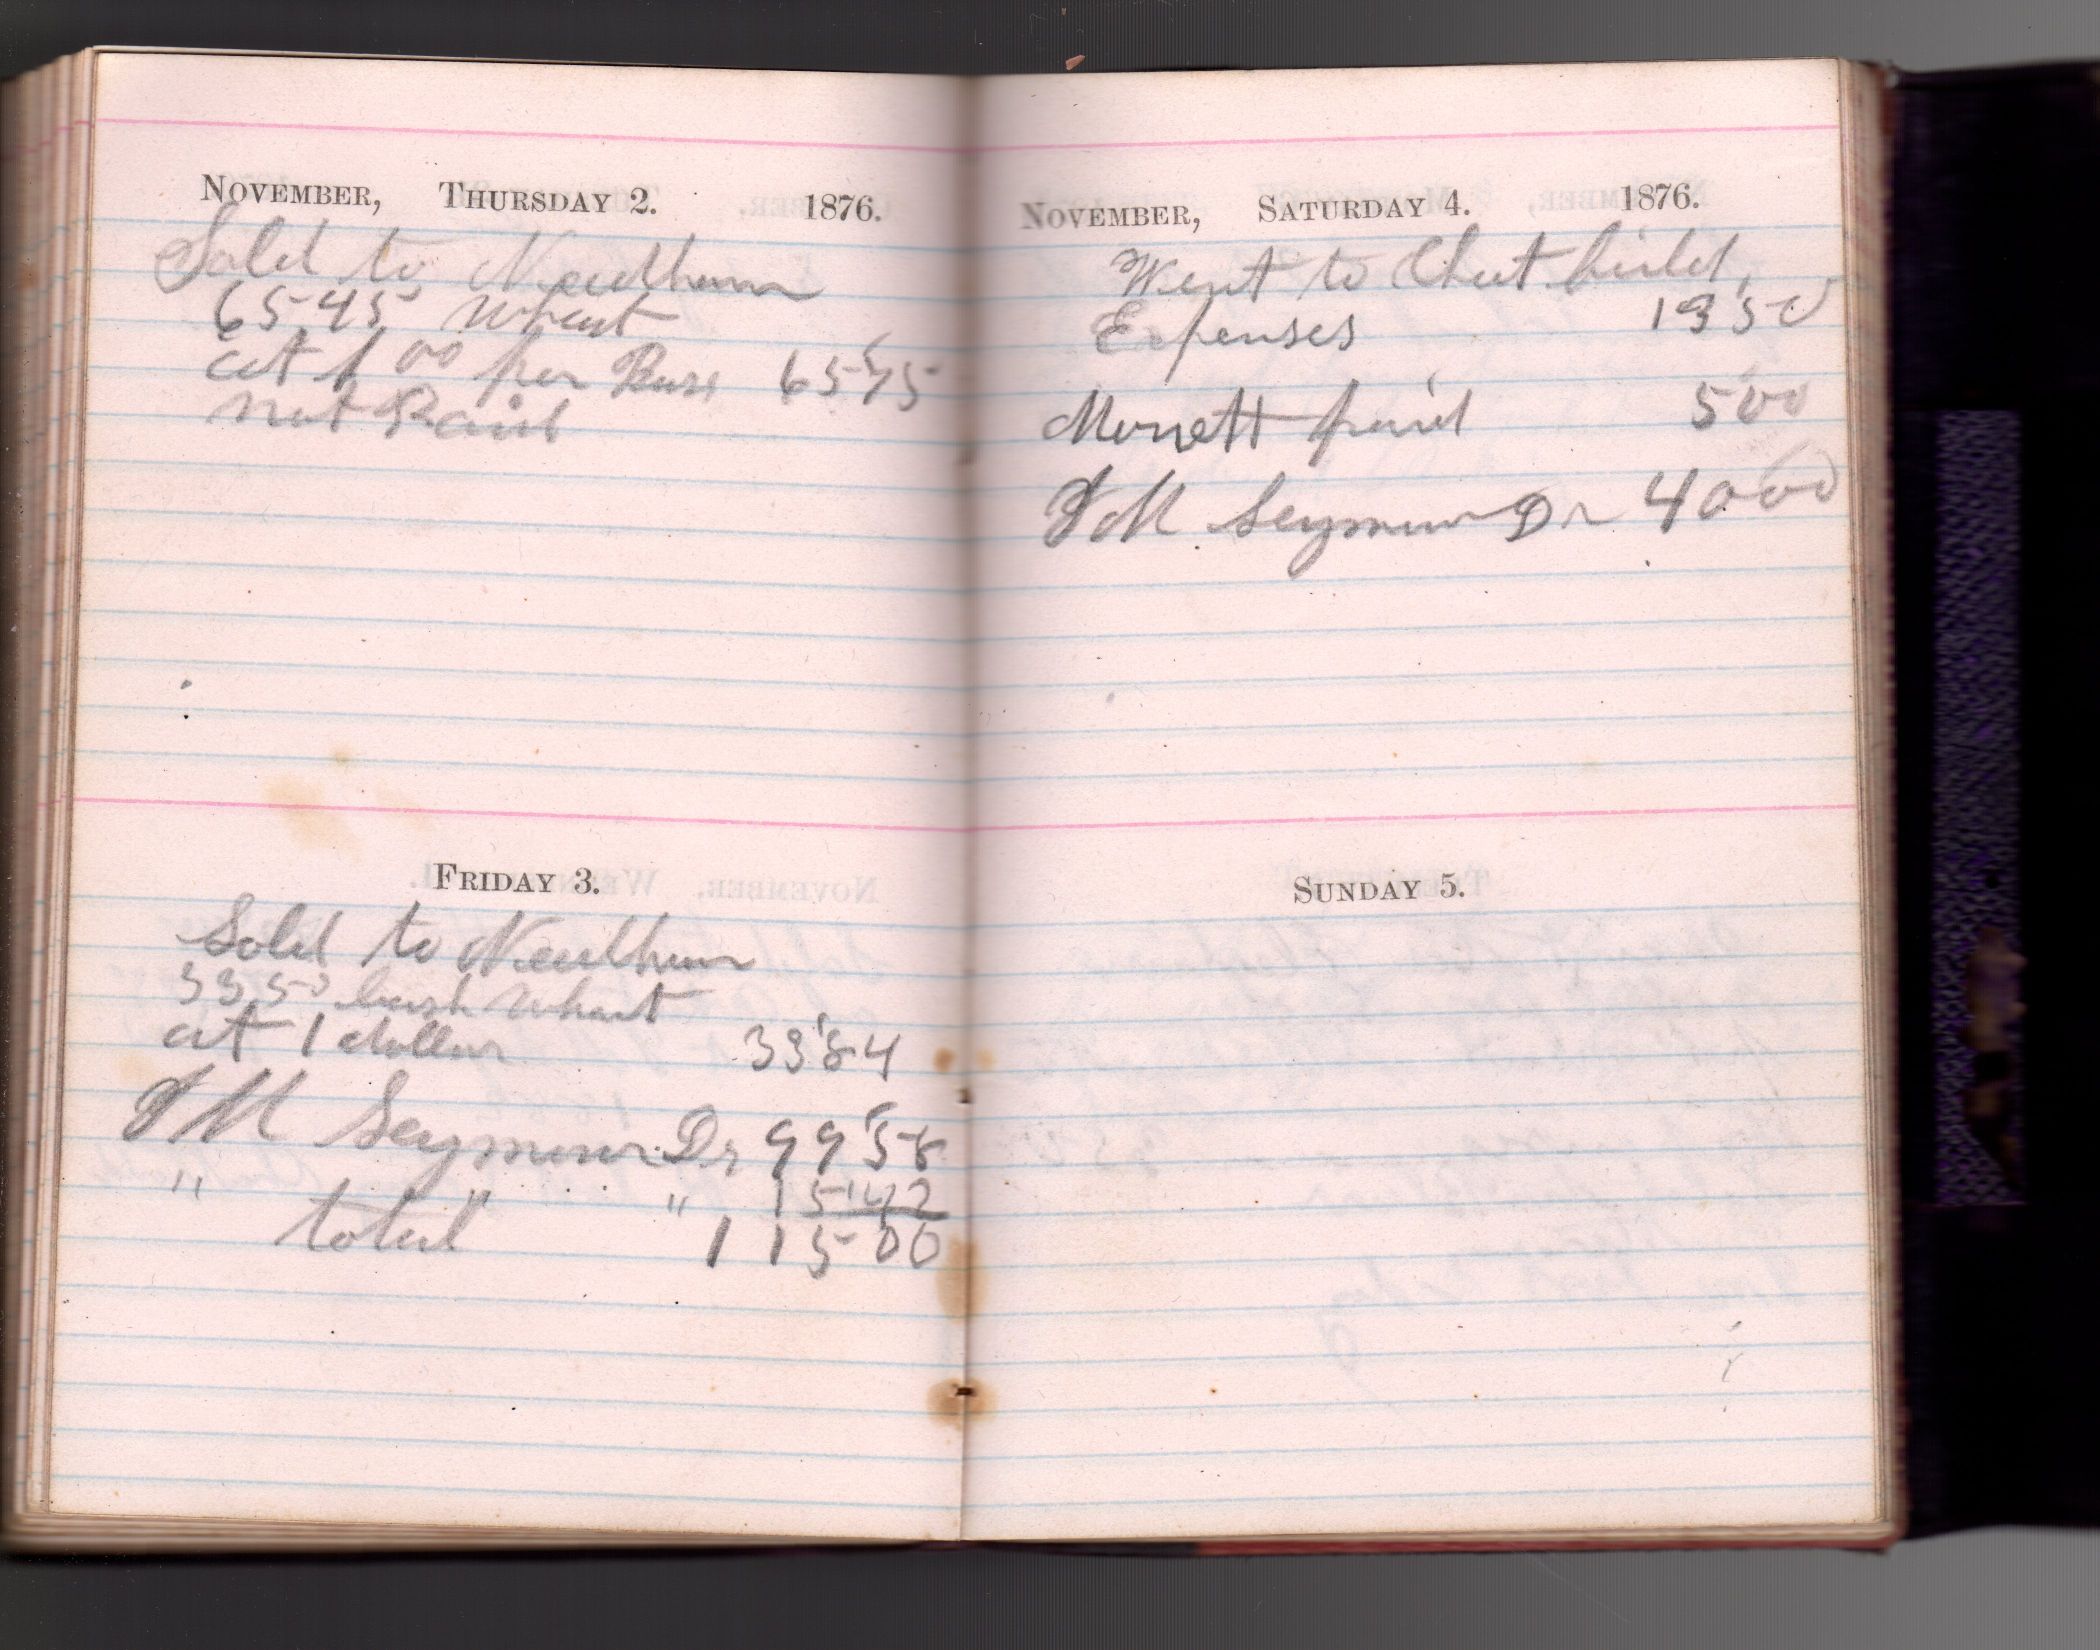 NOVEMBER, THURSDAY 2. 1876.
Sold to Needham
65-45 wheat
at 1 00 per Bus 65'75
not Paid
FRIDAY 3.
Sold to Needham
33 50 bush wheat
at 1 dollar 33'84
J M Seymour Dr 99'58
" " 15'42
total 115 00
NOVEMBER, SATURDAY 4. 1876.
Went to Chatfield,
Expenses 13 50
Monett paid 5'00
J M Seymour Dr 40 00
SUNDAY 5.